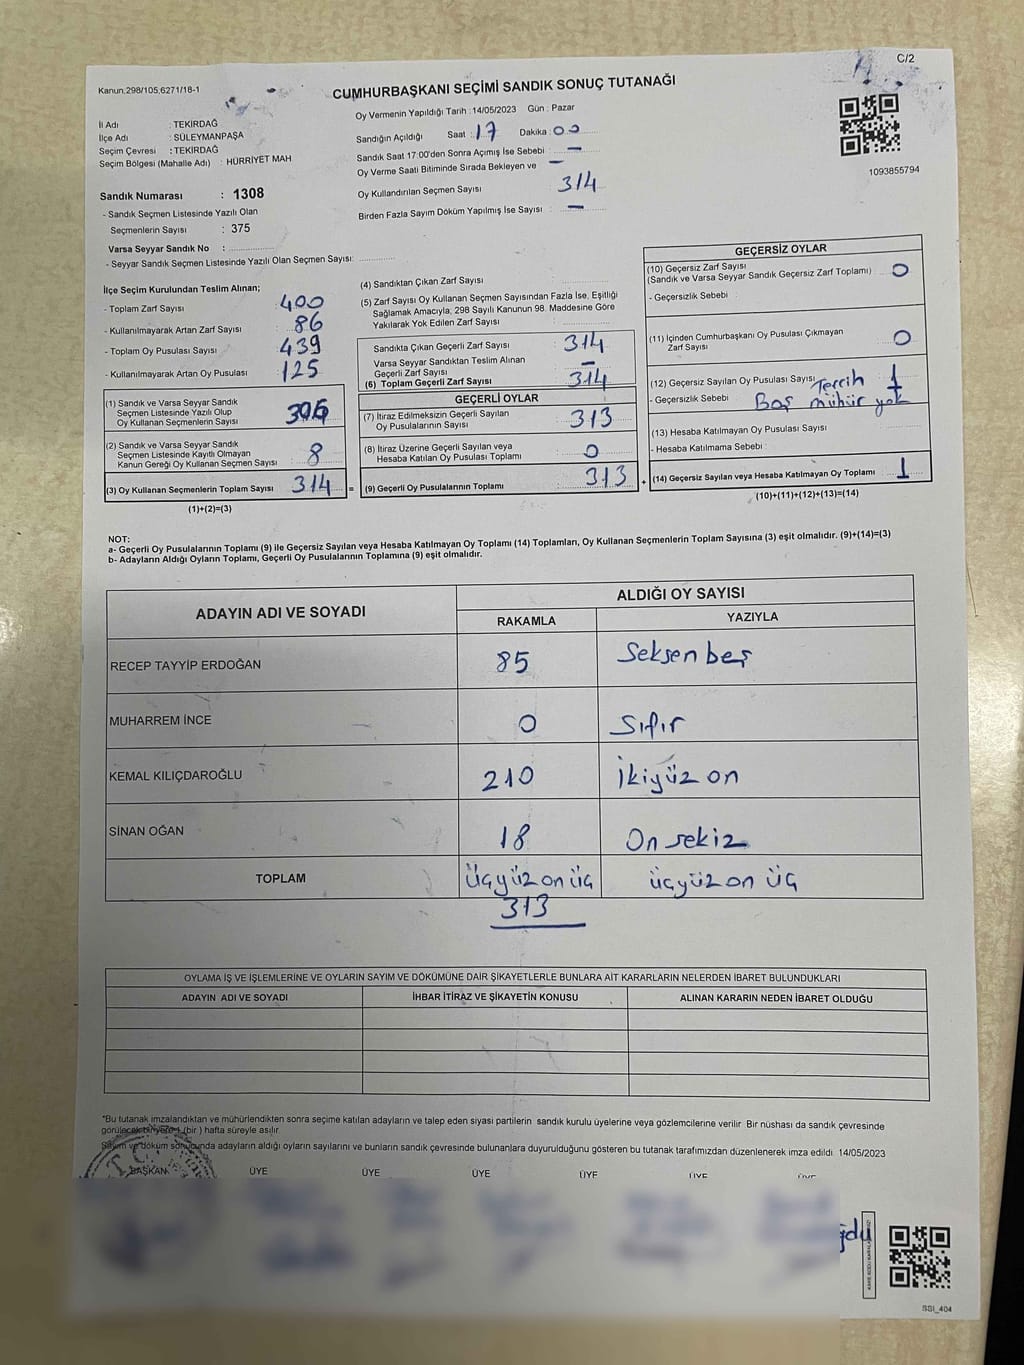 C/2
Kanun.298/105,6271/18-1
CUMHURBAŞKANI SEÇİMİ SANDIK SONUÇ TUTANAĞI
İl Adı : TEKİRDAĞ
İlçe Adı : SÜLEYMANPAŞA
Seçim Çevresi : TEKİRDAĞ
Seçim Bölgesi (Mahalle Adı) : HÜRRİYET MAH
Sandık Numarası : 1308
- Sandık Seçmen Listesinde Yazılı Olan
Seçmenlerin Sayısı : 375
Varsa Seyyar Sandık No :
- Seyyar Sandık Seçmen Listesinde Yazılı Olan Seçmen Sayısı:
Oy Vermenin Yapıldığı Tarih : 14/05/2023 Gün : Pazar
Sandığın Açıldığı Saat : 17 Dakika : 00
Sandık Saat 17:00'den Sonra Açımış İse Sebebi : —
Oy Verme Saati Bitiminde Sırada Bekleyen ve —
Oy Kullandırılan Seçmen Sayısı 314
Birden Fazla Sayım Döküm Yapılmış İse Sayısı : —
1093855794
İlçe Seçim Kurulundan Teslim Alınan;
- Toplam Zarf Sayısı : 400
- Kullanılmayarak Artan Zarf Sayısı : 86
- Toplam Oy Pusulası Sayısı : 439
- Kullanılmayarak Artan Oy Pusulası : 125
(1) Sandık ve Varsa Seyyar Sandık
Seçmen Listesinde Yazılı Olup
Oy Kullanan Seçmenlerin Sayısı : 306
(2) Sandık ve Varsa Seyyar Sandık
Seçmen Listesinde Kayıtlı Olmayan
Kanun Gereği Oy Kullanan Seçmen Sayısı : 8
(3) Oy Kullanan Seçmenlerin Toplam Sayısı : 314
(1)+(2)=(3)
(4) Sandıktan Çıkan Zarf Sayısı :
(5) Zarf Sayısı Oy Kullanan Seçmen Sayısından Fazla İse, Eşitliği
Sağlamak Amacıyla; 298 Sayılı Kanunun 98. Maddesine Göre
Yakılarak Yok Edilen Zarf Sayısı :
Sandıkta Çıkan Geçerli Zarf Sayısı : 314
Varsa Seyyar Sandıktan Teslim Alınan
Geçerli Zarf Sayısı : —
(6) Toplam Geçerli Zarf Sayısı : 314
GEÇERLİ OYLAR
(7) İtiraz Edilmeksizin Geçerli Sayılan
Oy Pusulalarının Sayısı : 313
(8) İtiraz Üzerine Geçerli Sayılan veya
Hesaba Katılan Oy Pusulası Toplamı : 0
= (9) Geçerli Oy Pusulalarının Toplamı : 313
GEÇERSİZ OYLAR
(10) Geçersiz Zarf Sayısı
(Sandık ve Varsa Seyyar Sandık Geçersiz Zarf Toplamı) : 0
- Geçersizlik Sebebi :
(11) İçinden Cumhurbaşkanı Oy Pusulası Çıkmayan
Zarf Sayısı : 0
(12) Geçersiz Sayılan Oy Pusulası Sayısı : 1
- Geçersizlik Sebebi : Boş Tercih mühür yok
(13) Hesaba Katılmayan Oy Pusulası Sayısı :
- Hesaba Katılmama Sebebi :
+ (14) Geçersiz Sayılan veya Hesaba Katılmayan Oy Toplamı : 1
(10)+(11)+(12)+(13)=(14)
NOT:
a- Geçerli Oy Pusulalarının Toplamı (9) ile Geçersiz Sayılan veya Hesaba Katılmayan Oy Toplamı (14) Toplamları, Oy Kullanan Seçmenlerin Toplam Sayısına (3) eşit olmalıdır. (9)+(14)=(3)
b- Adayların Aldığı Oyların Toplamı, Geçerli Oy Pusulalarının Toplamına (9) eşit olmalıdır.
ADAYIN ADI VE SOYADI
ALDIĞI OY SAYISI
RAKAMLA YAZIYLA
RECEP TAYYİP ERDOĞAN 85 Seksen beş
MUHARREM İNCE 0 Sıfır
KEMAL KILIÇDAROĞLU 210 İkiyüz on
SİNAN OĞAN 18 On sekiz
TOPLAM Üçyüz on üç üçyüz on üç
313
OYLAMA İŞ VE İŞLEMLERİNE VE OYLARIN SAYIM VE DÖKÜMÜNE DAİR ŞİKAYETLERLE BUNLARA AİT KARARLARIN NELERDEN İBARET BULUNDUKLARI
ADAYIN ADI VE SOYADI İHBAR İTİRAZ VE ŞİKAYETİN KONUSU ALINAN KARARIN NEDEN İBARET OLDUĞU
*Bu tutanak imzalandıktan ve mühürlendikten sonra seçime katılan adayların ve talep eden siyasi partilerin sandık kurulu üyelerine veya gözlemcilerine verilir. Bir nüshası da sandık çevresinde
görülecek bir yere 1 (bir ) hafta süreyle asılır.
Sayım ve döküm sonucunda adayların aldığı oyların sayılarını ve bunların sandık çevresinde bulunanlara duyurulduğunu gösteren bu tutanak tarafımızdan düzenlenerek imza edildi. 14/05/2023
T.C.
BAŞKAN ÜYE ÜYE ÜYE ÜYE ÜYE ÜYE
SSI_404